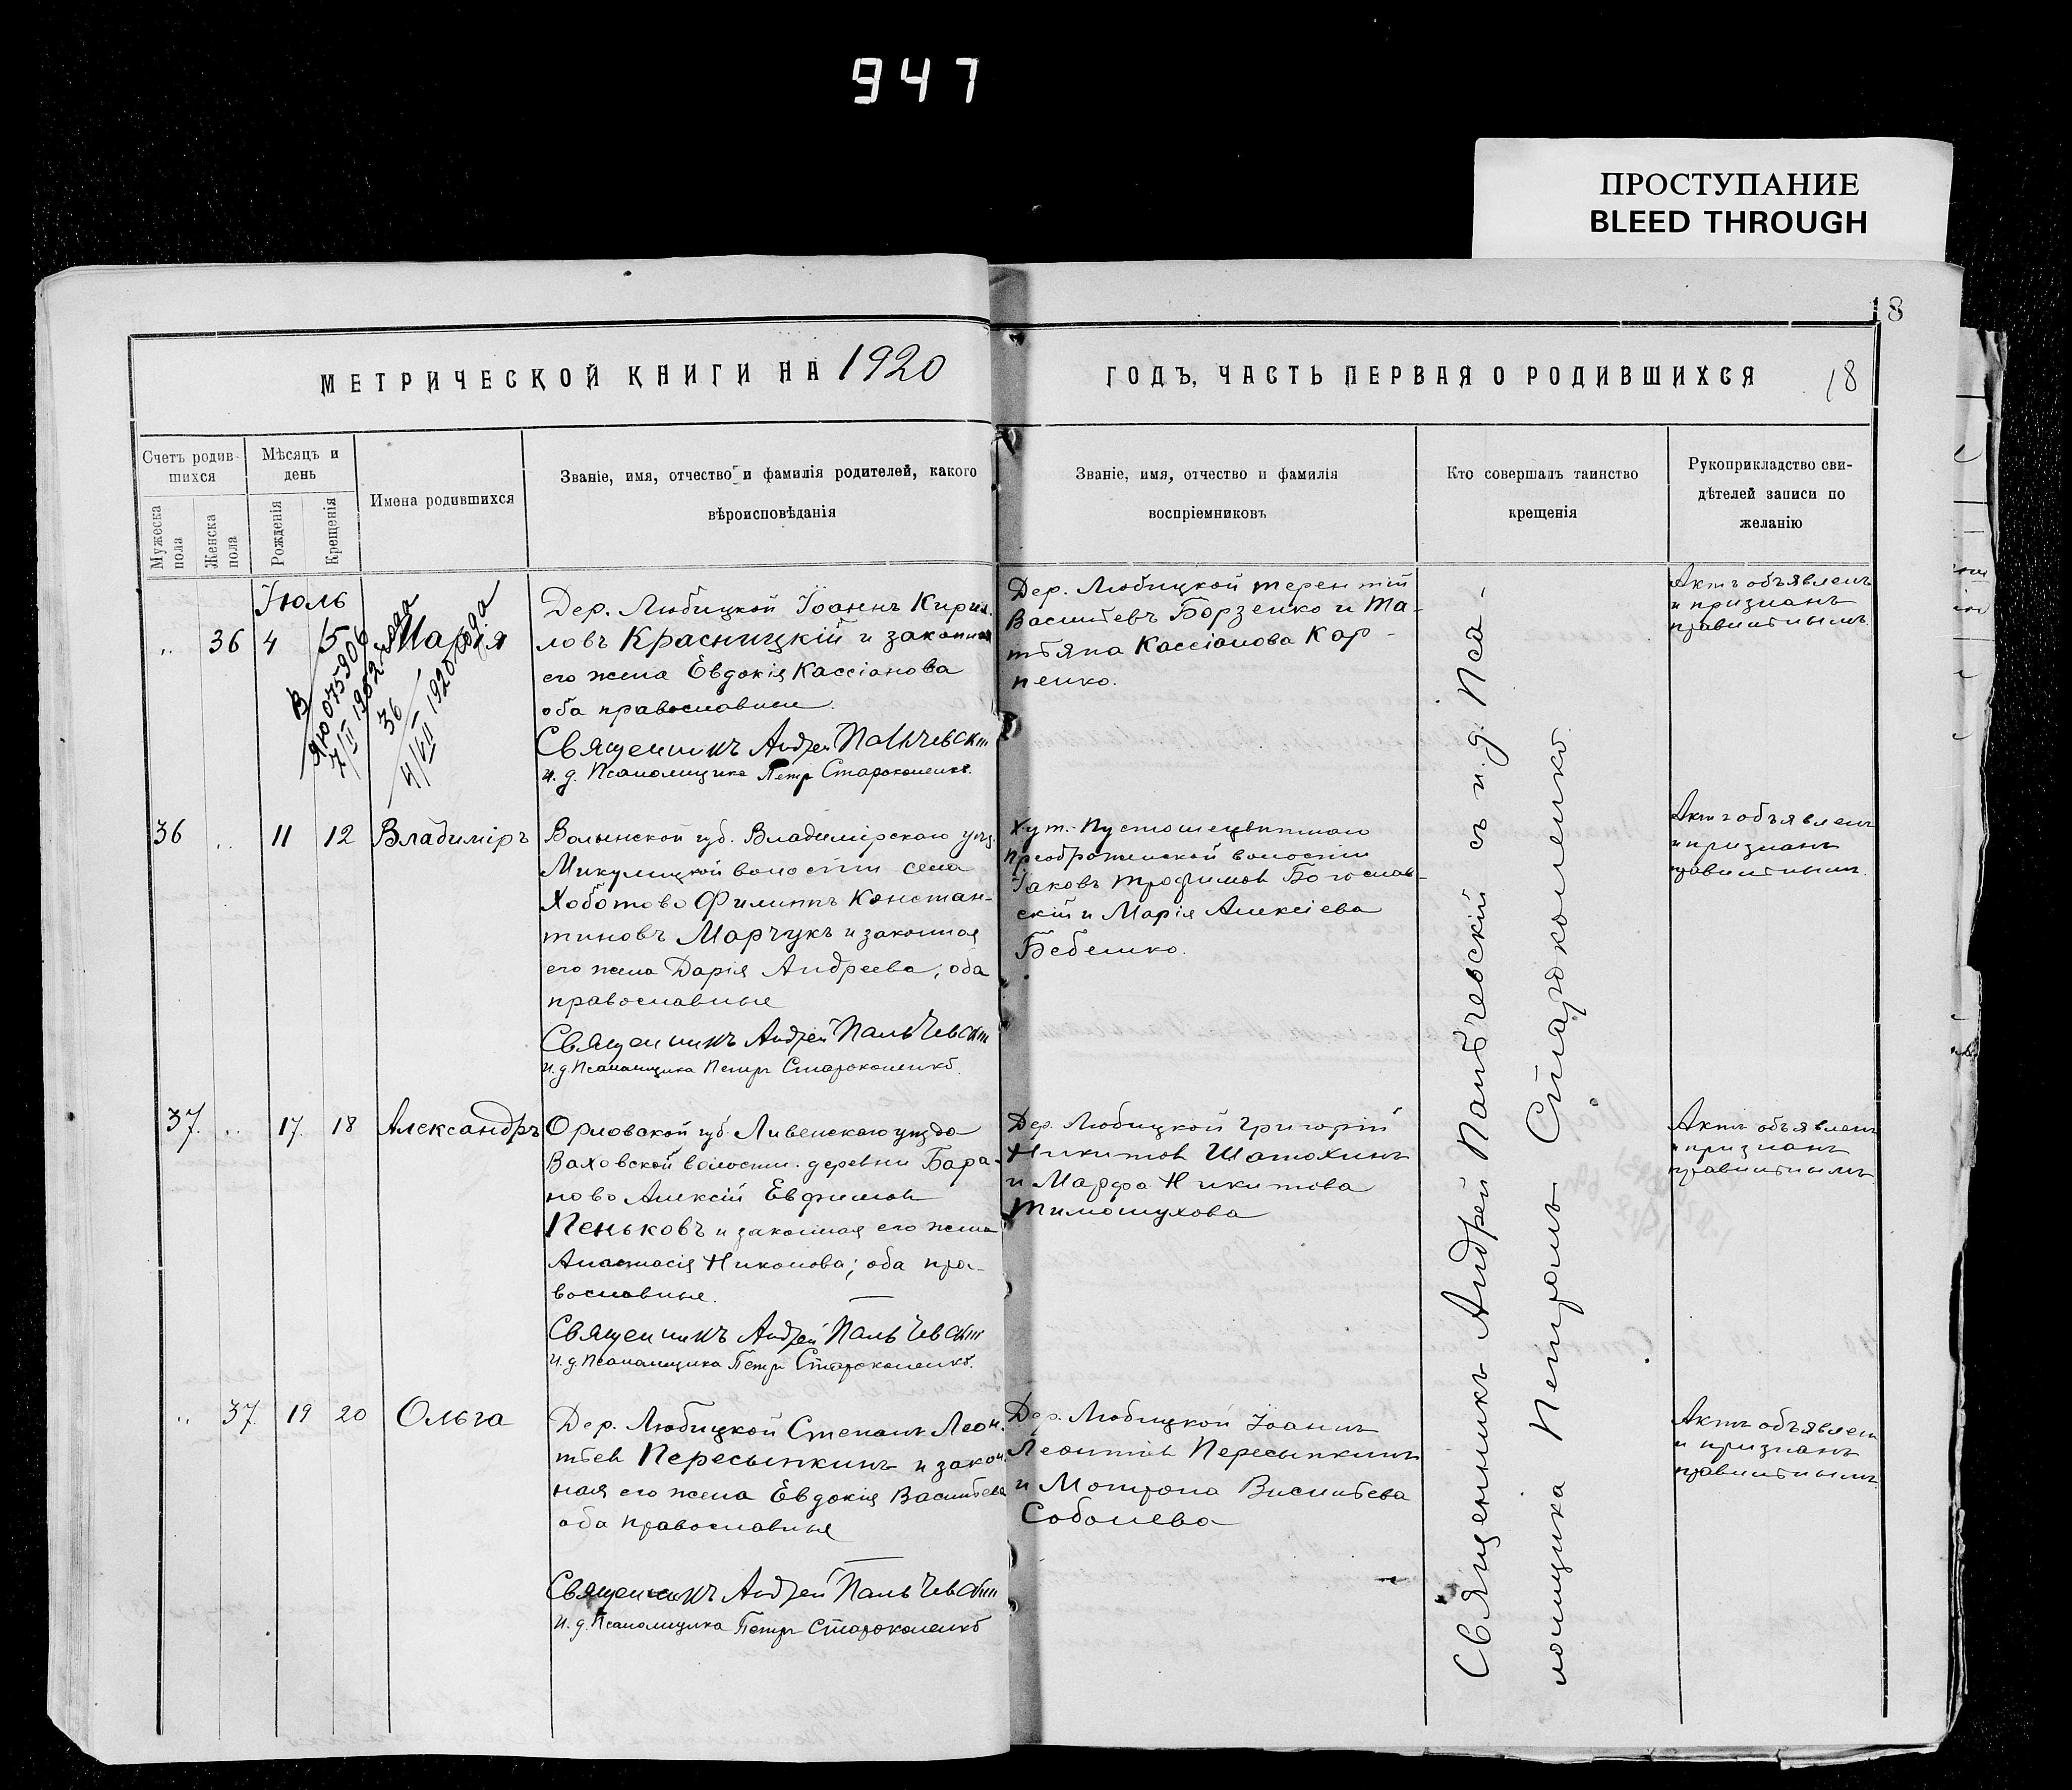 947
ПРОСТУПАНИЕ
BLEED THROUGH
18
МЕТРИЧЕСКОЙ КНИГИ НА 1920
ГОДЪ, ЧАСТЬ ПЕРВАЯ О РОДИВШИХСЯ 18
Счетъ родив-
шихся
Мужеска пола
Женска пола
Мѣсяцъ и
день
Рожденія
Крещенія
Имена родившихся
Званіе, имя, отчество и фамилія родителей, какого
вѣроисповѣданія
Званіе, имя, отчество и фамилія
воспріемниковъ
Кто совершалъ таинство
крещенія
Рукоприкладство сви-
дѣтелей записи по
желанію
Іюль
„ 36 4 5 Марія
36
4/VII 1920 года
Дер. Любицкой Іоаннъ Кирил-
ловъ Красницкій и законная
его жена Евдокія Кассіанова
оба православные.
Священникъ Андрей Пальчевскій
и. д. Псаломщика Петръ Староконенко.
Дер. Любицкой Терентій
Васильевъ Борзенко и Та-
тьяна Кассіанова Кар-
пенко.
Актъ объявленъ
и признанъ
правильнымъ
36 „ 11 12 Владиміръ
Волынской губ. Владимірскаго уѣз.
Микулицкой волости села
Хоботово Филиппъ Констан-
тиновъ Марчукъ и законная
его жена Дарія Андреева; оба
православные
Священникъ Андрей Пальчевскій
и. д. Псаломщика Петръ Староконенко.
Хут.
Преображенской волости
Іаковъ Трофимовъ Богослав-
скій и Марія Алексіева
Бебешко.
Актъ объявленъ
и признанъ
правильнымъ.
37. „ 17. 18 Александръ
Орловской губ. Ливенскаго уѣзда
Ваховской волости деревни Бара-
ново Алексій Евфимовъ
Пеньковъ и законная его жена
Анастасія Никонова; оба пра-
вославные.
Священникъ Андрей Пальчевскій
и. д. Псаломщика Петръ Староконенко.
Дер. Любицкой Григорій
Никитовъ Шатохинъ
и Марфа Никитова
Тимошухова
Актъ объявленъ
и признанъ
правильнымъ
„ 37. 19 20 Ольга
Дер. Любицкой Степанъ Леон-
тьевъ Пересыпкинъ и закон-
ная его жена Евдокія Васильева
оба православные
Священникъ Андрей Пальчевскій
и. д. Псаломщика Петръ Староконенко
Дер. Любицкой Іоаннъ
Леонтіевъ Пересыпкинъ
и Матрона Васильева
Соболева
Актъ объявленъ
и признанъ
правильнымъ.
Священникъ Андрей Пальчевскій съ и. д. Пса-
ломщика Петромъ Староконенко.